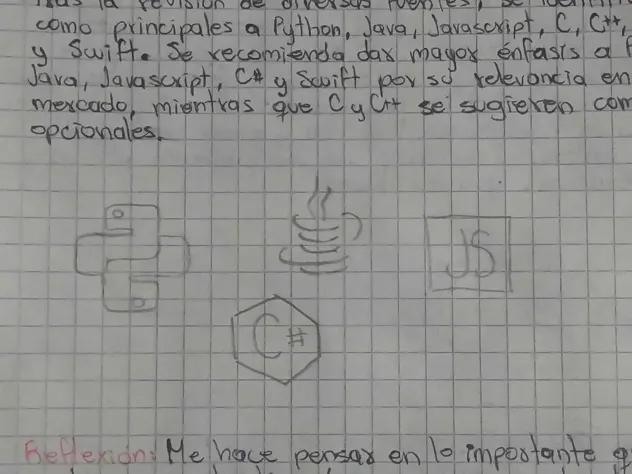 la revisión de diversas fuentes, se
como principales a Python, Java, Javascript, C, C++,
y Swift. Se recomienda dar mayor énfasis a
Java, Javascript, C# y Swift por su relevancia en
mercado, mientras que C y C++ se sugieren com
opcionales.
JS
C#
Reflexión: Me hace pensar en lo importante q